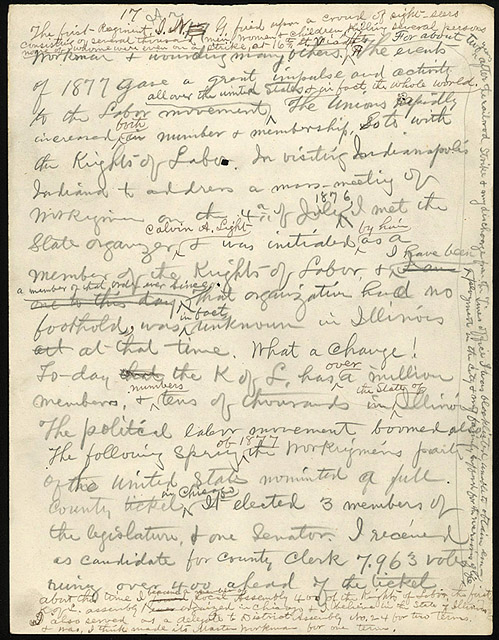 17
The first Regiment, I.N.G, fired upon a crowd of sight-seers
consisting of several thousand men, women & children, killing several persons
none of whom were ever on a strike, at 16th St. Viaduct. For about two
workmen & wounding many others. The events
of 1877 gave a great impulse and activity
all over the United States & in fact the whole world.
to the Labor movement, The Unions rapidly
both
increased in number & membership, So to with
the Knights of Labor. In visiting Indianapolis
Indiana to address a mass-meeting of
1876
workingmen on the 4th of July, I met the
Calvin A. Light by him
State organizer, & was initiated as a
I have been
member of the Knights of Labor, & I am
a member of that order ever since.
out to this day, that organization had no
in fact
foothold, was unknown in Illinois
at that time. What a change!
over
To-day the K of L. has a million
numbers the State of
members, & tens of thousands in Illinois
The political labor movement boomed also
of 1877
The following Spring the Workingmen's party
of the United States nominated a full
in Chicago
County ticket, It elected 3 members of
the legislature, & one Senator. I received
as candidate for County Clerk 7,963 votes
runing over 400 ahead of the ticket
about that time I became a member of Local Assembly 400 of the Knights of Labor, the first
K of L. assembly ever organized in Chicago & I believe in the State of Illinois
also served as a delegate to District Assembly 24 for two terms.
& was, I think made its Master Workman for one term.
years after the railroad Strike & my discharge from the Times office I was blacklisted & unable to obtain employment in the city & my family suffered for the necessaries of life